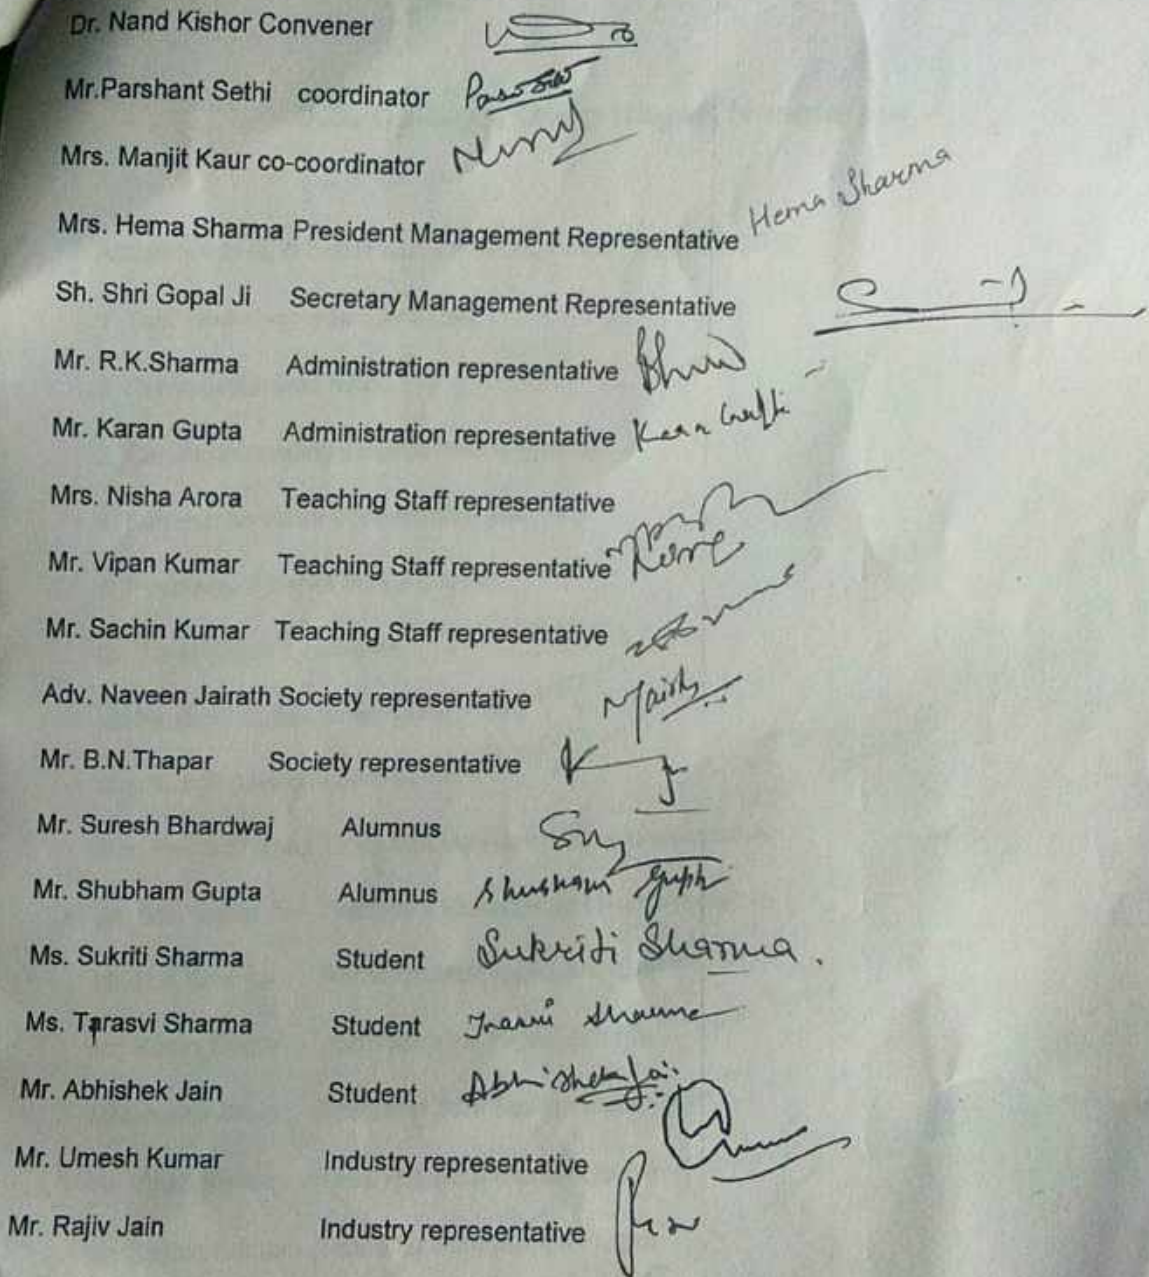 Dr. Nand Kishor Convener
Mr.Parshant Sethi coordinator
Mrs. Manjit Kaur co-coordinator
Mrs. Hema Sharma President Management Representative Hema Sharma
Sh. Shri Gopal Ji Secretary Management Representative
Mr. R.K.Sharma Administration representative
Mr. Karan Gupta Administration representative Karan Gupta
Mrs. Nisha Arora Teaching Staff representative
Mr. Vipan Kumar Teaching Staff representative
Mr. Sachin Kumar Teaching Staff representative
Adv. Naveen Jairath Society representative
Mr. B.N.Thapar Society representative
Mr. Suresh Bhardwaj Alumnus
Mr. Shubham Gupta Alumnus Shubham Gupta
Ms. Sukriti Sharma Student Sukriti Sharma.
Ms. Tarasvi Sharma Student Sharma
Mr. Abhishek Jain Student Abhishek Jain
Mr. Umesh Kumar Industry representative
Mr. Rajiv Jain Industry representative